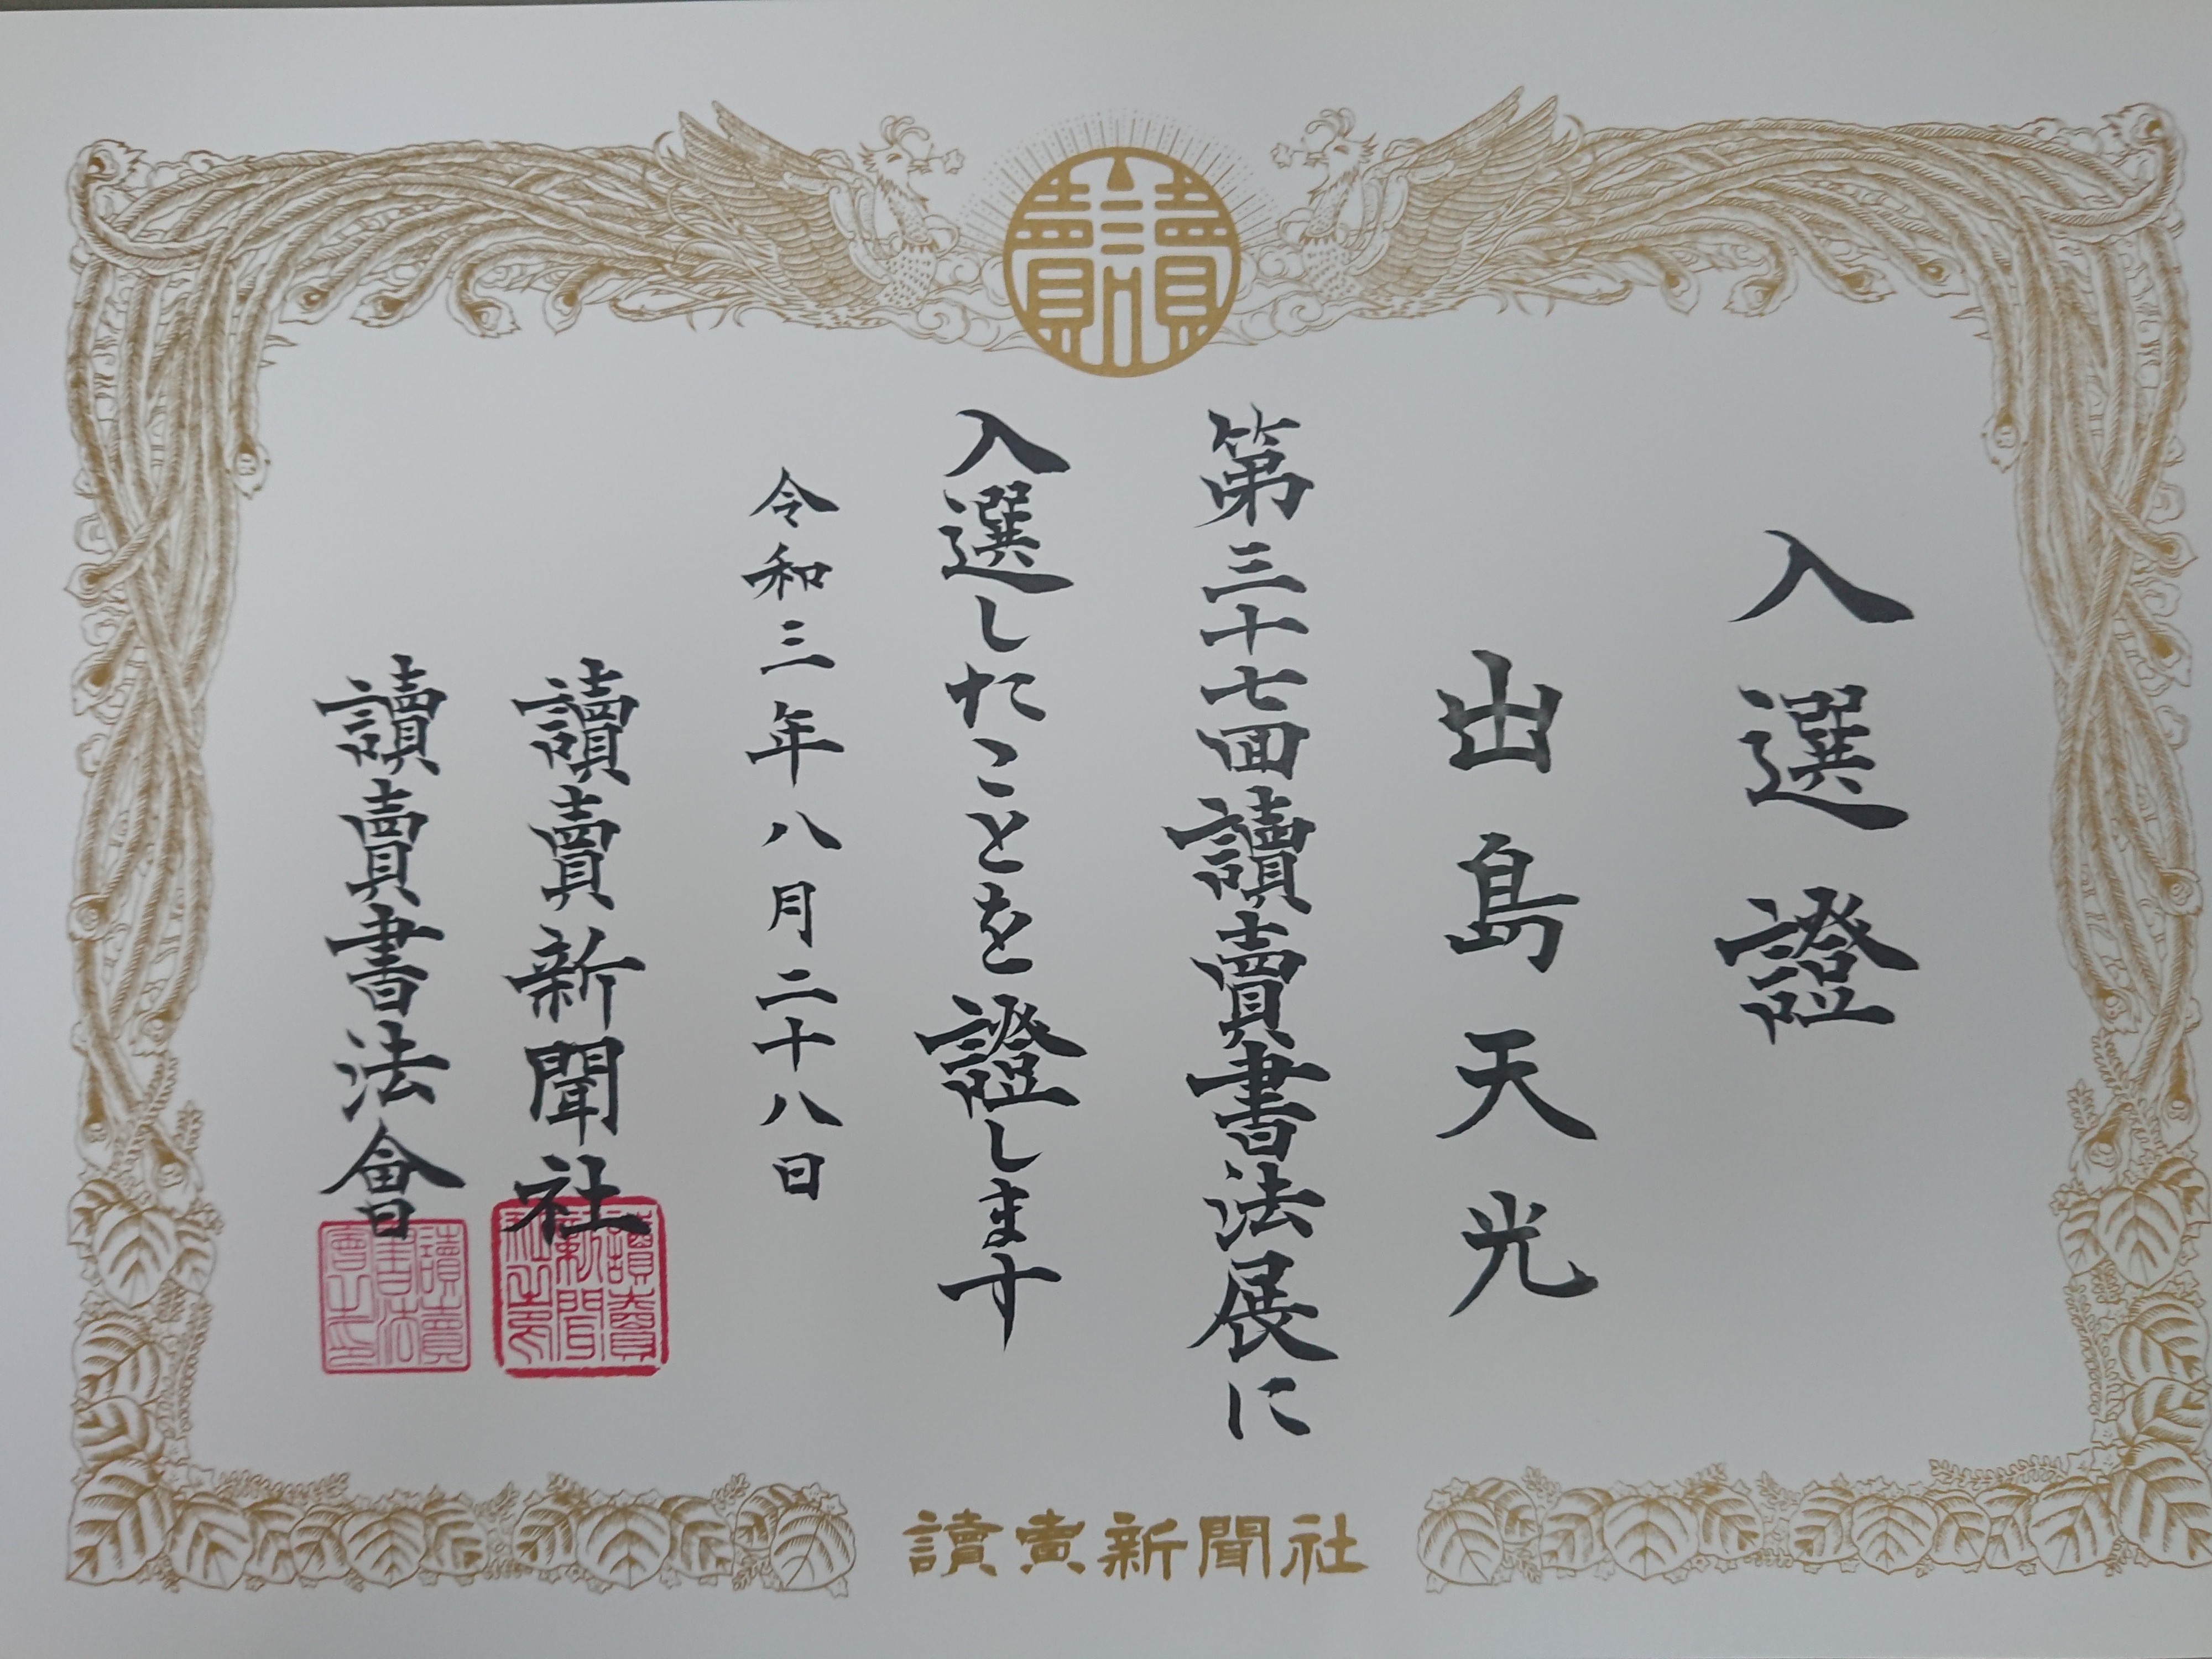 入選證
出島天光
第三十七回讀賣書法展に
入選したことを證します
令和三年八月二十八日
讀賣新聞社
讀賣書法會
讀賣新聞社